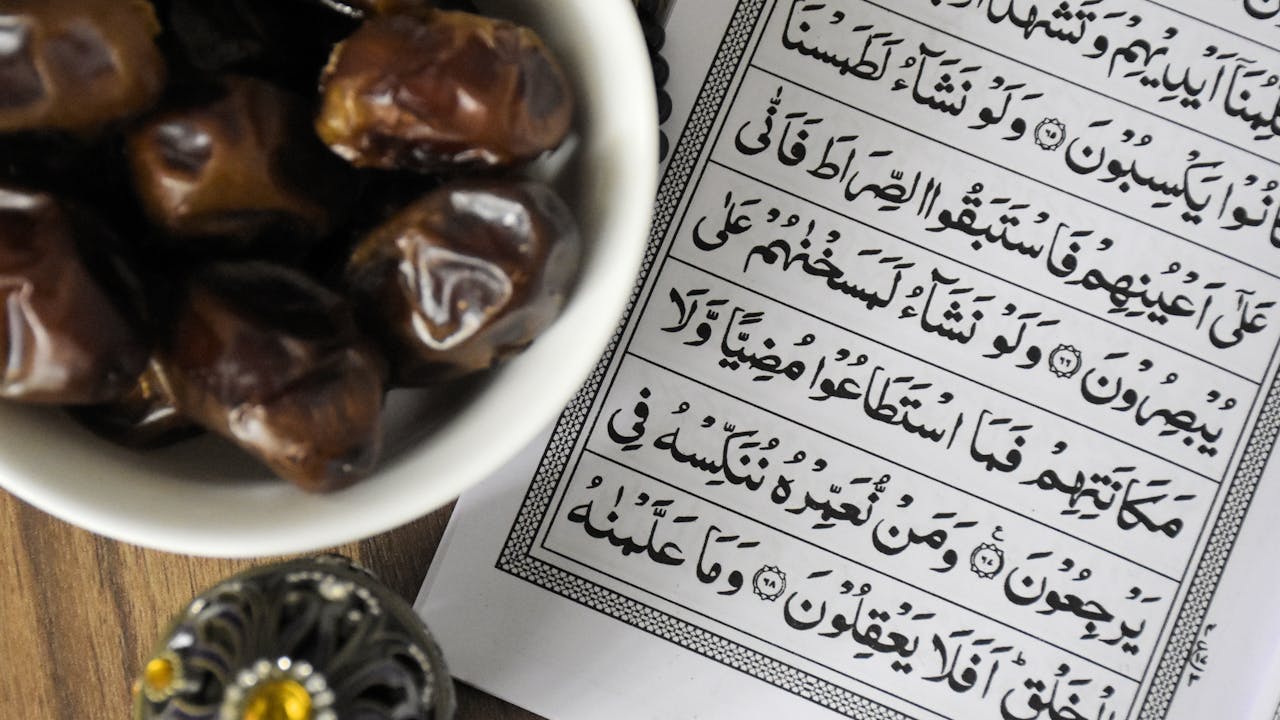 اَيْدِيْهِمْ وَتَشْهَدُ
كَانُوْا يَكْسِبُوْنَ ۝٦٥ وَلَوْ نَشَآءُ لَطَمَسْنَا
عَلٰٓى اَعْيُنِهِمْ فَاسْتَبَقُوا الصِّرَاطَ فَاَنّٰى
يُبْصِرُوْنَ ۝٦٦ وَلَوْ نَشَآءُ لَمَسَخْنٰهُمْ عَلٰى
مَكَانَتِهِمْ فَمَا اسْتَطَاعُوْا مُضِيًّا وَّلَا
يَرْجِعُوْنَ ۝٦٧ ع وَمَنْ نُّعَمِّرْهُ نُنَكِّسْهُ فِى
الْخَلْقِ ؕ اَفَلَا يَعْقِلُوْنَ ۝٦٨ وَمَا عَلَّمْنٰهُ